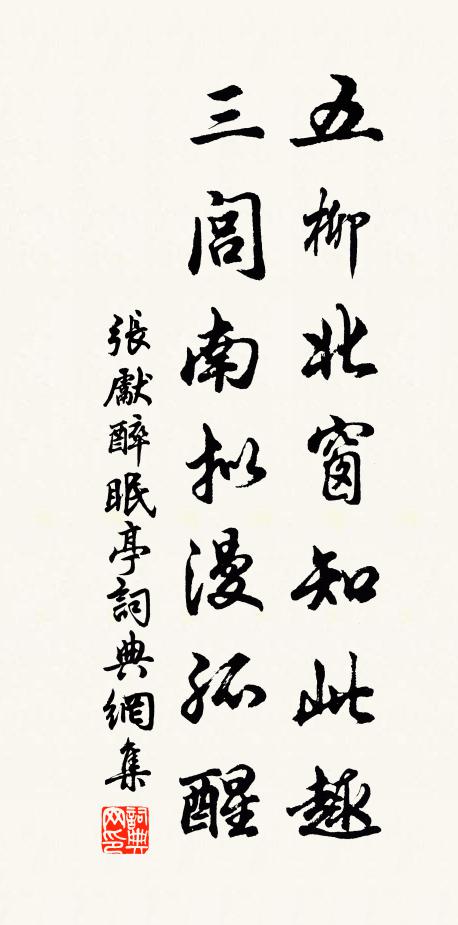 五柳北窗知此趣
三閭南拟漫孤醒
張獻醉眠亭詞典網集
詞典网印